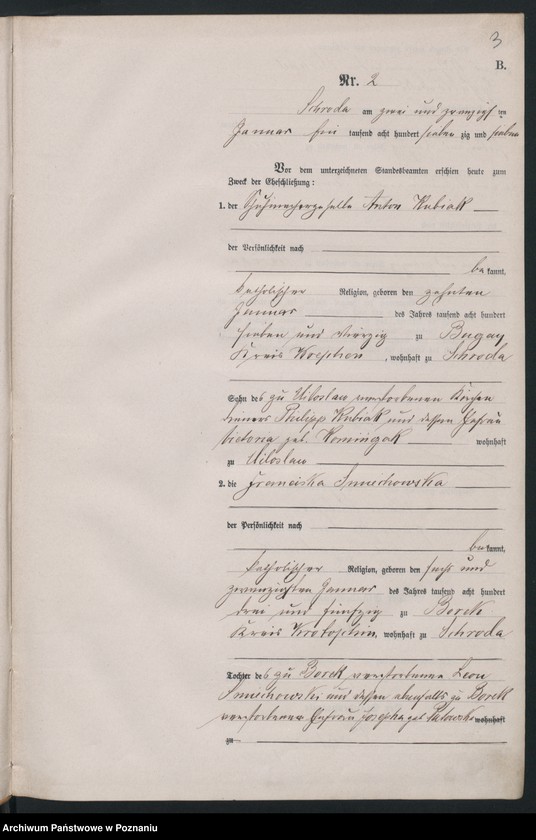 3
B.
Nr. 2
Schroda am zwei und zwanzigsten
Januar ein tausend acht hundert sieben zig und sieben
Vor dem unterzeichneten Standesbeamten erschien heute zum
Zweck der Eheschließung:
1. der Anton Kubiak
der Persönlichkeit nach
be kannt,
katholischer Religion, geboren den zehnten
Januar des Jahres tausend acht hundert
sieben und vierzig zu Bugay
Kreis Wreschen, wohnhaft zu Schroda
Sohn des zu Miloslaw verstorbenen Kirchen
dieners Philipp Kubiak und dessen Ehefrau
Victoria geb. wohnhaft
zu Miloslaw
2. die Franciska Smuchowska
der Persönlichkeit nach
be kannt,
katholischer Religion, geboren den sechs und
zwanzigsten Januar des Jahres tausend acht hundert
drei und fünfzig zu Borek
Kreis Krotoschin, wohnhaft zu Schroda
Tochter des zu Borek verstorbenen Leon
Smuchowski und dessen ebenfalls zu Borek
verstorbenen Ehefrau Josepha geb. wohnhaft
zu
Archiwum Państwowe w Poznaniu